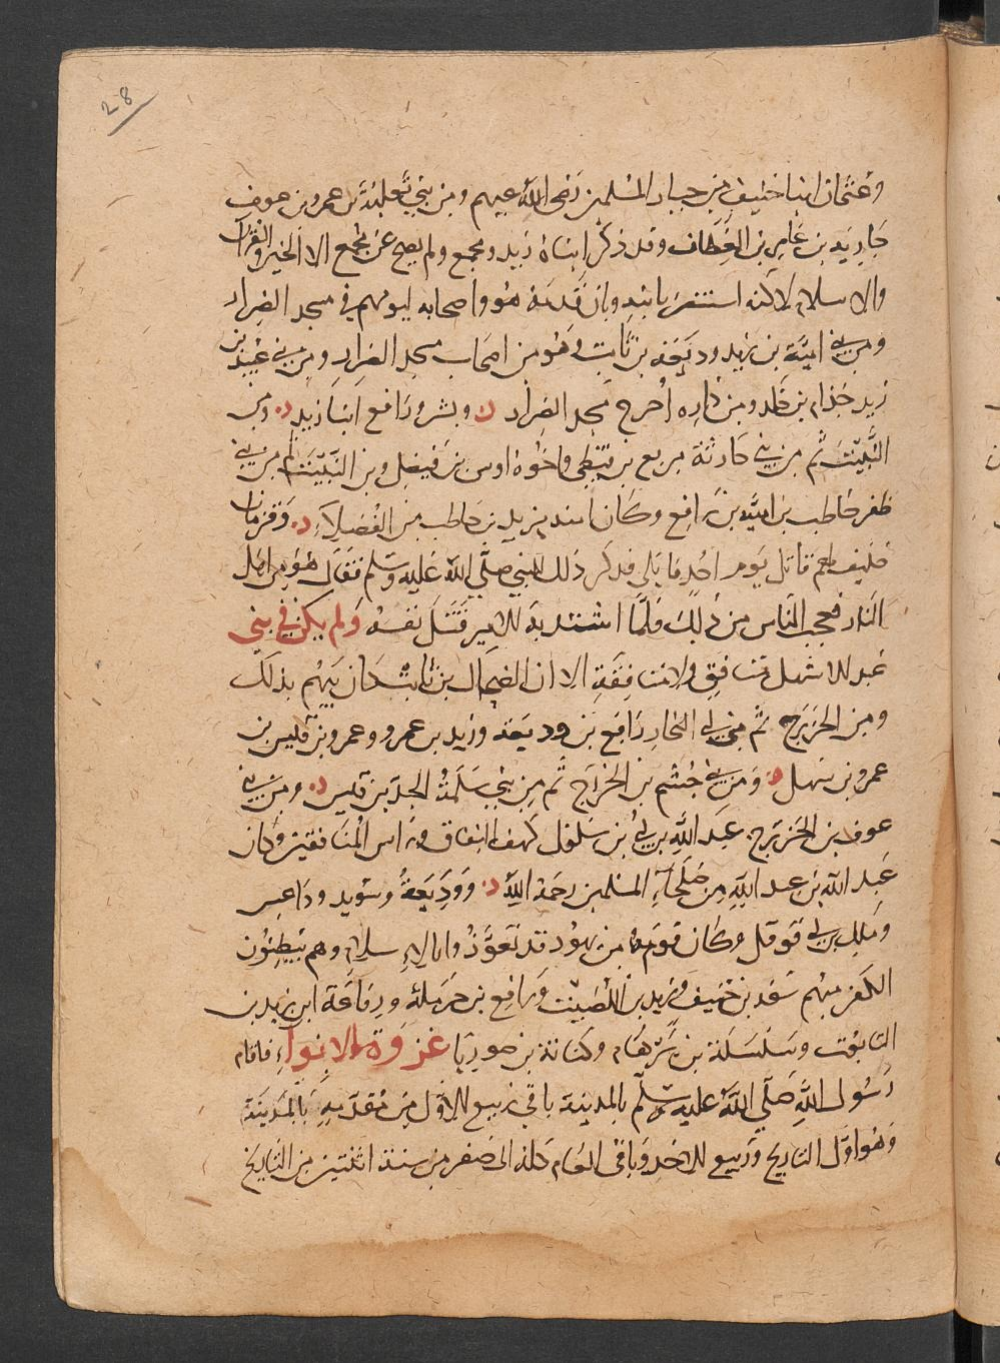 28
وعثمان ابنا حنيف من خيار المسلمين رضى الله عنهم ومن بني ثعلبة بن عمرو بن عوف
جارية بن عامر بن العطاف وقد ذكر ابناه زيد ومجمع ولم يصح عن مجمع الا الخير والقرآن
والاسلام لاكنه استتر بابيه وبان قدمه هو واصحابه ليومهم في مسجد الضرار
ومن بني امية بن زيد وديعة بن ثابت وهو من اصحاب مسجد الضرار ومن بني عبيد بن
زيد خذام بن خلد ومن داره اخرج مسجد الضرار وبشر ورافع ابنا زيد ومن
النبيت ثم من بني حارثة مربع بن قيظي واخوه اوس بن قيظي ومن النبيت ثم من بني
ظفر حاطب بن امية بن رافع وكان ابنه يزيد بن حاطب من الفضلاء وقزمان
حليف لهم قاتل يوم احد فذكر ذلك للنبي صلى الله عليه وسلم فقال هو من اهل
النار فعجب الناس من ذلك فلما اشتد به الامر قتل نفسه ولم يكن في بني
عبد الاشهل منافق ولا منافقة الا ان الضحاك بن ثابت كان يتهم بذلك
ومن الخزرج ثم من بني النجار رافع بن وديعة وزيد بن عمرو وعمرو بن قيس بن
عمرو بن سهل ومن بني جشم بن الخزرج ثم من بني سلمة الجد بن قيس ومن بني
عوف بن الخزرج عبد الله بن ابي بن سلول كهف النفاق وراس المنافقين وكان
عبد الله بن عبد الله من صلحاء المسلمين رحمة الله ووديعة وسويد وداعس
وملك بن ابي قوقل وكان قوم من يهود قد تعوذوا بالاسلام وهم يبطنون
الكفر منهم سعد بن حنيف وزيد بن اللصيت ورافع بن حرملة ورفاعة ابن زيد بن
التابوت وسلسلة بن برهام وكنانة بن صوريا غزوة الابواء فاقام
رسول الله صلى الله عليه وسلم بالمدينة باقي ربيع الاول من مقدمه بالمدينة
وهو اول التاريخ وربيع الاخر وباقى العام كله الى صفر من سنة اثنتين من التاريخ